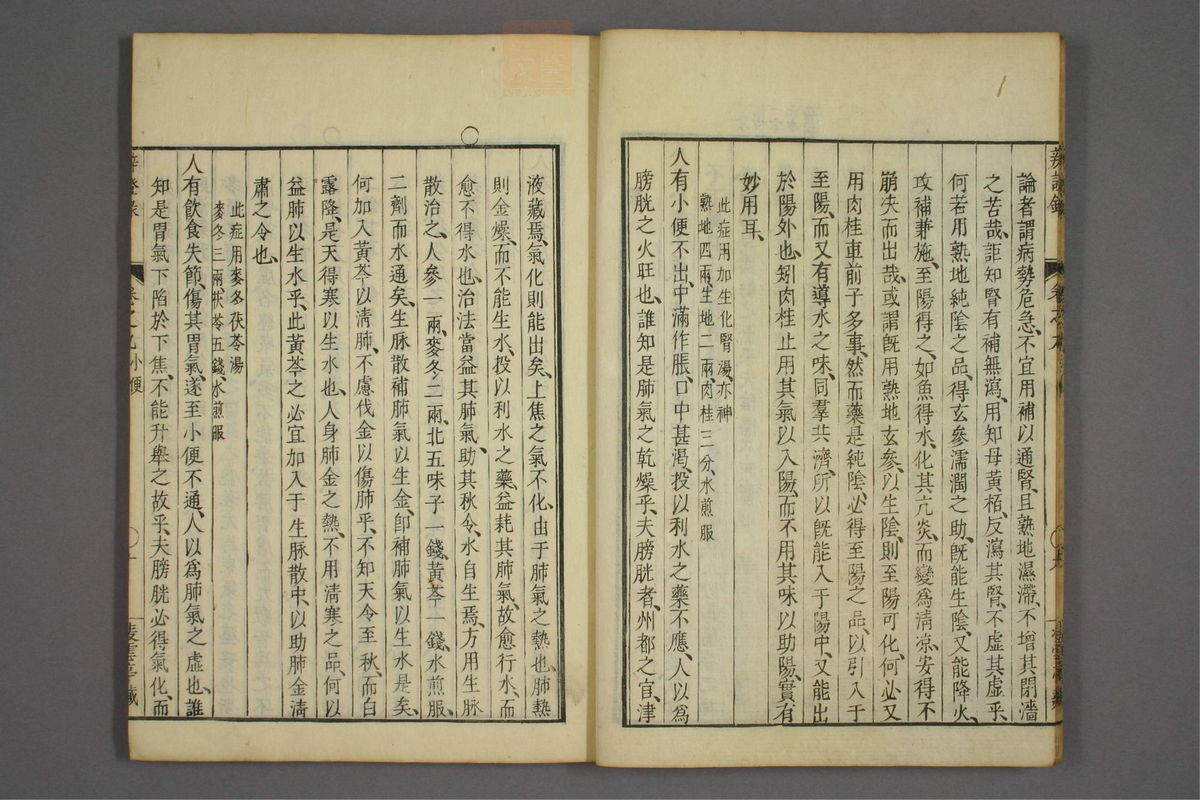 論者謂病勢危急、不宜用補以通腎、且熟地濕滯、不增其閉濇
之苦哉、詎知腎有補無瀉、用知母黃栢、反瀉其腎、不虛其虛乎、
何若用熟地純陰之品、得玄參濡潤之助、既能生陰、又能降火、
攻補兼施、至陽得之、如魚得水、化其亢炎、而變爲清凉、安得不
崩决而出哉、或謂既用熟地玄參、以生陰、則至陽可化、何必又
用肉桂車前子多事、然而藥是純陰、必得至陽之品、以引入于
至陽、而又有導水之味、同羣共濟、所以既能入于陽中、又能出
於陽外也、矧肉桂止用其氣以入陽、而不用其味以助陽、實有
妙用耳、
此症用加生化腎湯、亦神
熟地四兩、生地二兩、肉桂三分、水煎服
人有小便不出、中滿作脹、口中甚渴、投以利水之藥不應、人以爲
膀胱之火旺也、誰知是肺氣之乾燥乎、夫膀胱者、州都之官、津
液藏焉、氣化則能出矣、上焦之氣不化、由于肺氣之熱也、肺熱
則金燥、而不能生水、投以利水之藥、益耗其肺氣、故愈行水、而
愈不得水也、治法當益其肺氣、助其秋令、水自生焉、方用生脉
散治之、人參一兩、麥冬二兩、北五味子一錢、黃芩一錢、水煎服、
二劑而水通矣、生脉散補肺氣以生金、卽補肺氣以生水是矣、
何加入黃芩以清肺、不慮伐金以傷肺乎、不知天令至秋、而白
露降、是天得寒以生水也、人身肺金之熱、不用清寒之品、何以
益肺以生水乎、此黃芩之必宜加入于生脉散中、以助肺金清
肅之令也、
此症用麥冬茯苓湯
麥冬三兩、茯苓五錢、水煎服
人有飲食失節、傷其胃氣、遂至小便不通、人以爲肺氣之虛也、誰
知是胃氣下陷於下焦、不能升舉之故乎、夫膀胱必得氣化、而